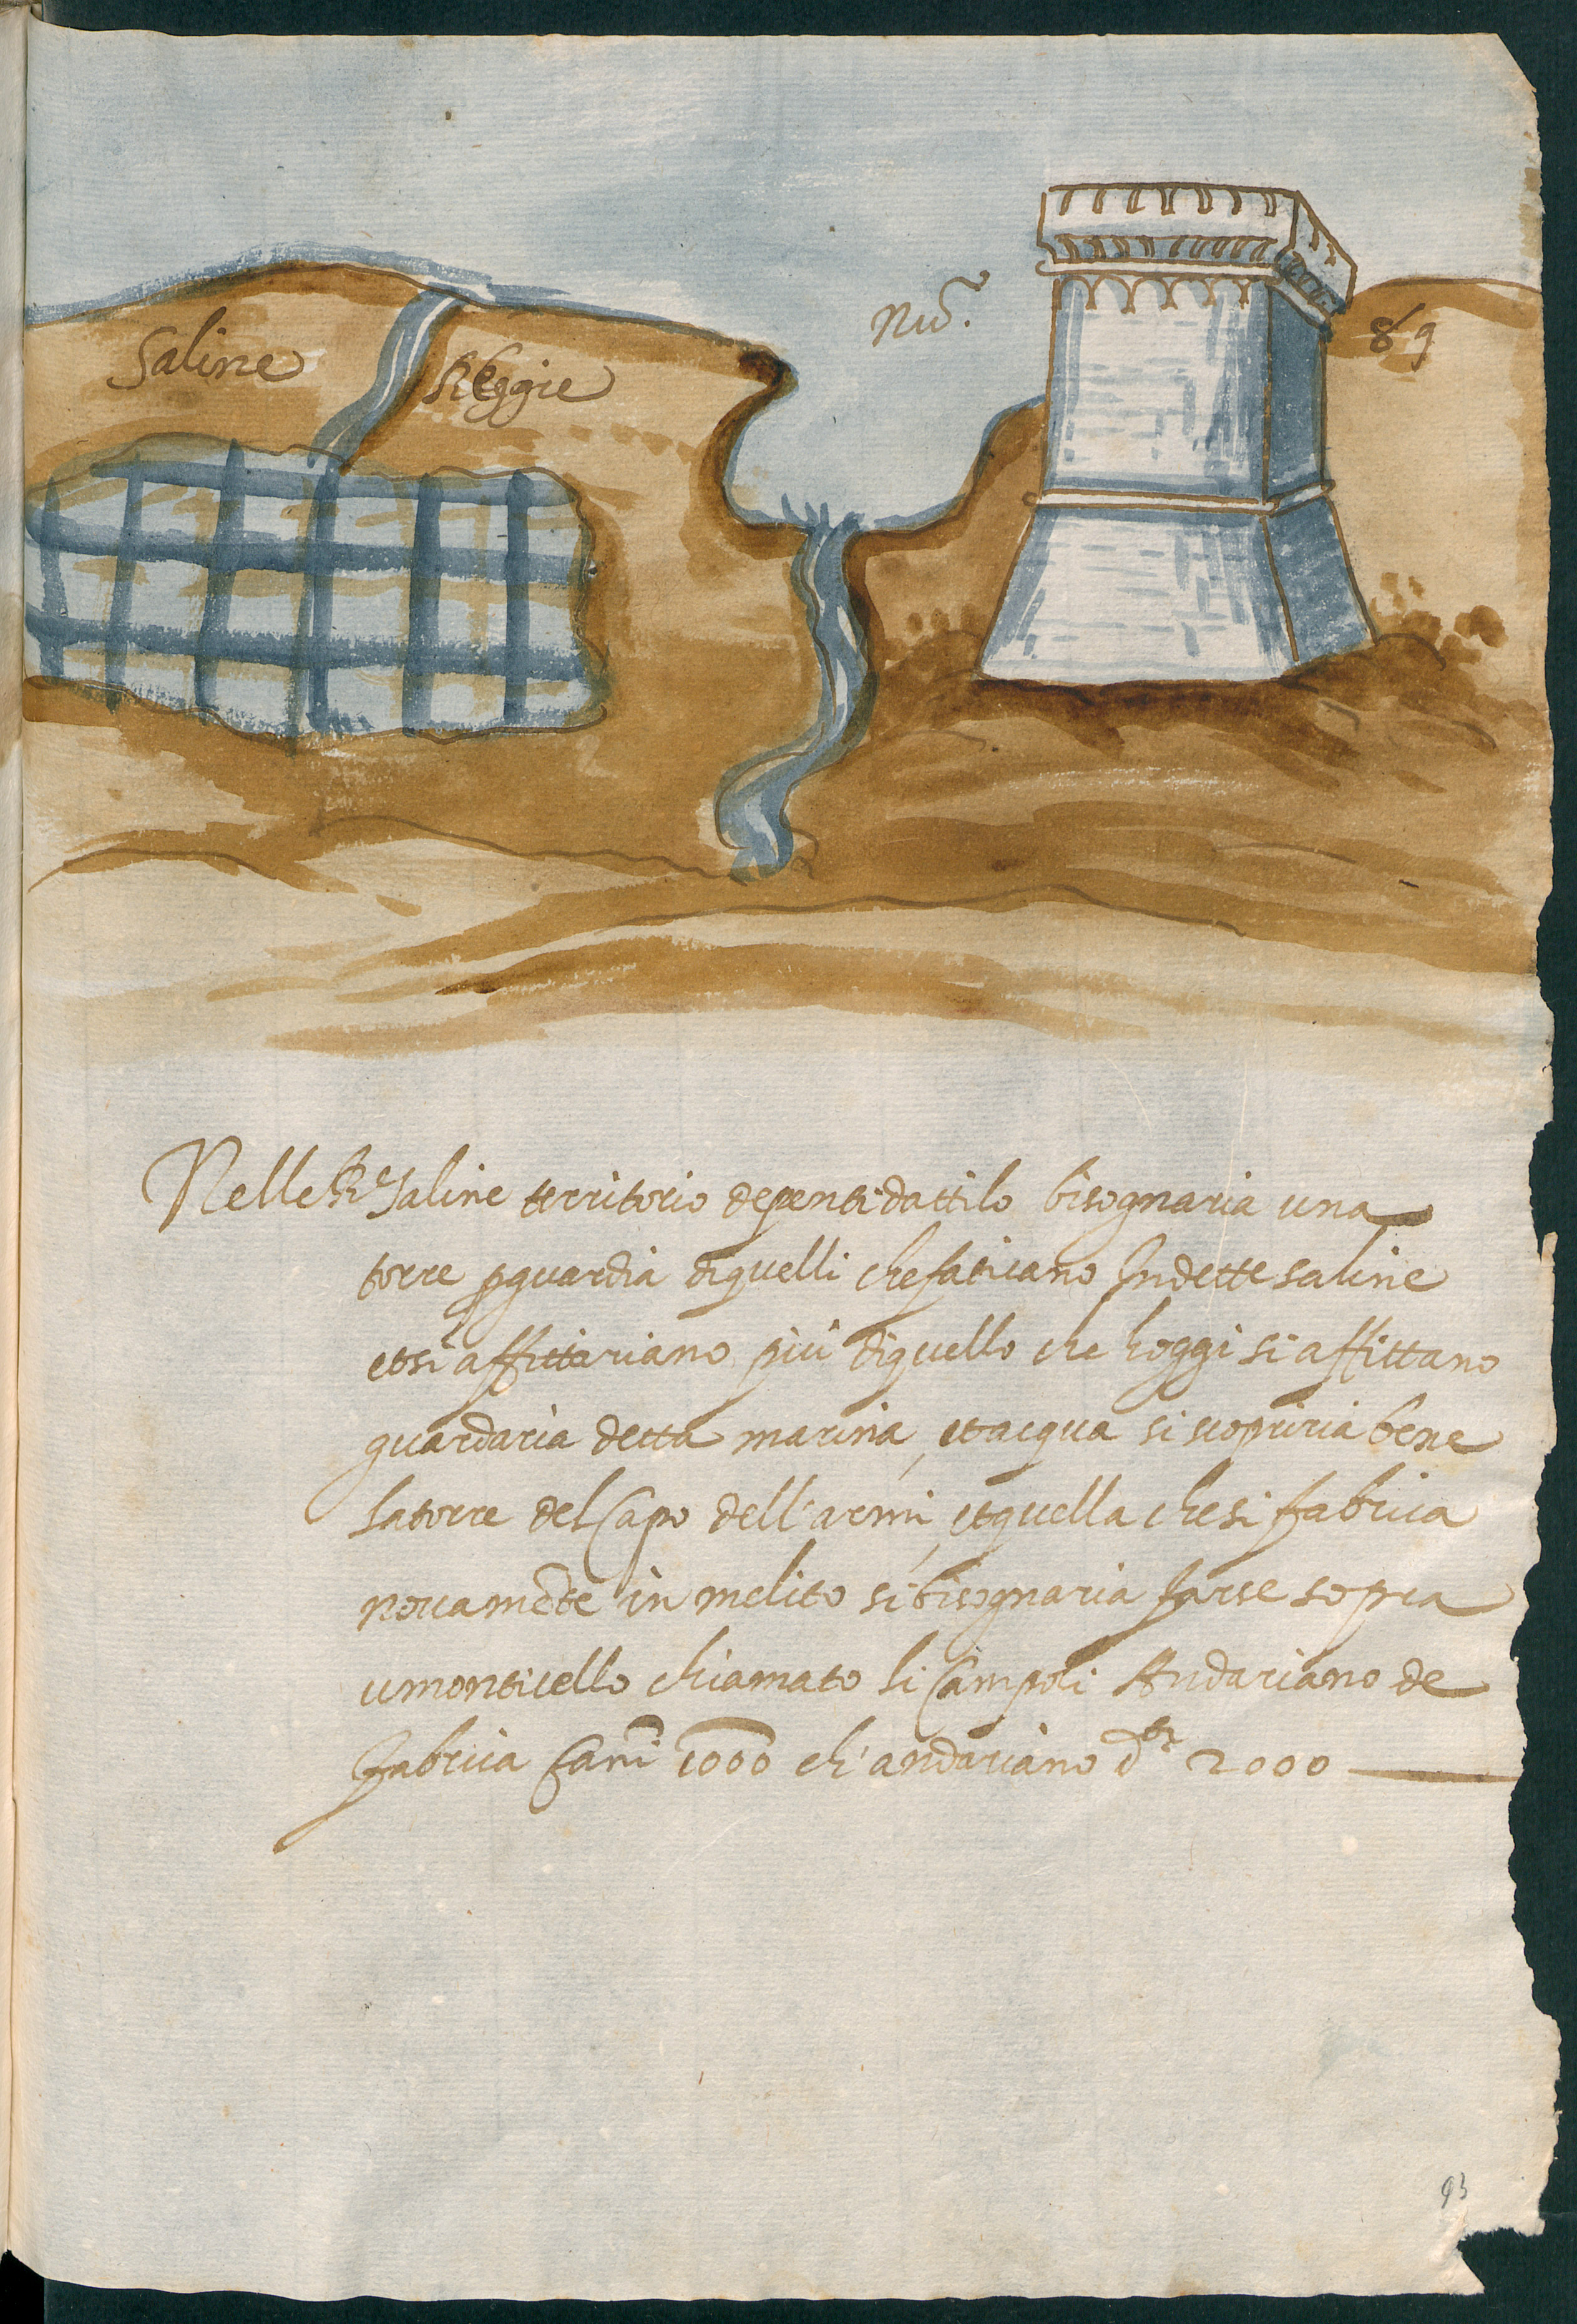 Saline Reggie
Nuo. 89
Nelle Re. Saline territorio de pentidattilo bisognaria una
torre p guardia di quelli che faticano In dette saline
et si affittariano più di quello che hoggi si affittano
guardaria detta marina, et acqua si scopriria bene
la torre del Capo dell'armi, et quella che si fabrica
novamēte in melito si bisognaria farse sopra
u monticello chiamato li Campoli Andariano de
fabrica Canī 1000 ch'andariano dti 2000
93